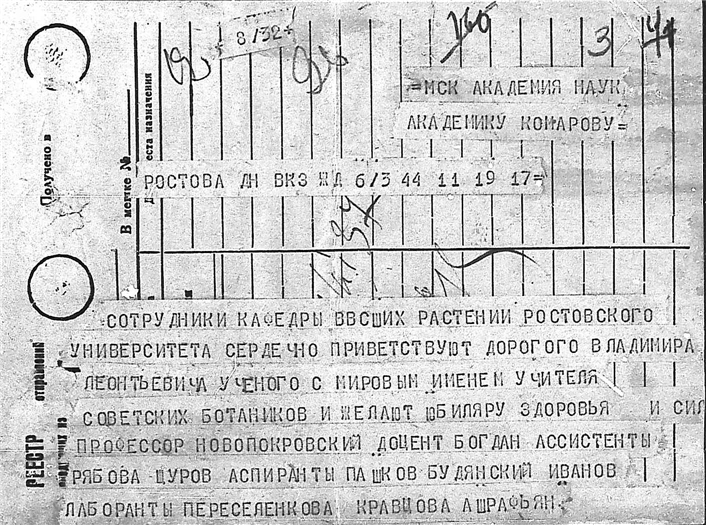 8/324
160
3
=МСК АКАДЕМИЯ НАУК
АКАДЕМИКУ КОМАРОВУ=
Получено в
В метчке №
места назначения
РОСТОВА ДН ВКЗ ЖД 6/3 44 11 19 17=
СОТРУДНИКИ КАФЕДРЫ ВВСШИХ РАСТЕНИИ РОСТОВСКОГО
УНИВЕРСИТЕТА СЕРДЕЧНО ПРИВЕТСТВУЮТ ДОРОГОГО ВЛАДИМИРА
ЛЕОНТЬЕВИЧА УЧЕНОГО С МИРОВЫМ ИМЕНЕМ УЧИТЕЛЯ
СОВЕТСКИХ БОТАНИКОВ И ЖЕЛАЮТ ЮБИЛЯРУ ЗДОРОВЬЯ И СИЛ
ПРОФЕССОР НОВОПОКРОВСКИЙ ДОЦЕНТ БОГДАН АССИСТЕНТЫ
РЯБОВА ЩУРОВ АСПИРАНТЫ ПАШКОВ БУДЯНСКИЙ ИВАНОВ
ЛАБОРАНТЫ ПЕРЕСЕЛЕНКОВА КРАВЦОВА АШРАФЬЯН.
РЕЕСТР
отправлений